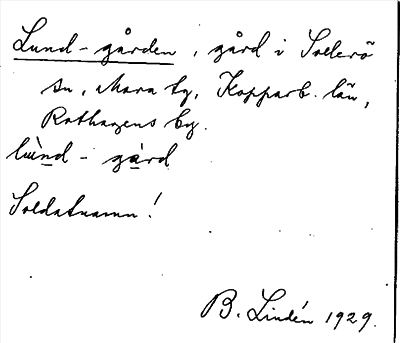 Lund-gården, gård i Sollerö
sn, Mora tg, Kopparb. län,
Rothagens by.
lùnd - gård
Soldatnamn!
B. Lindén 1929.